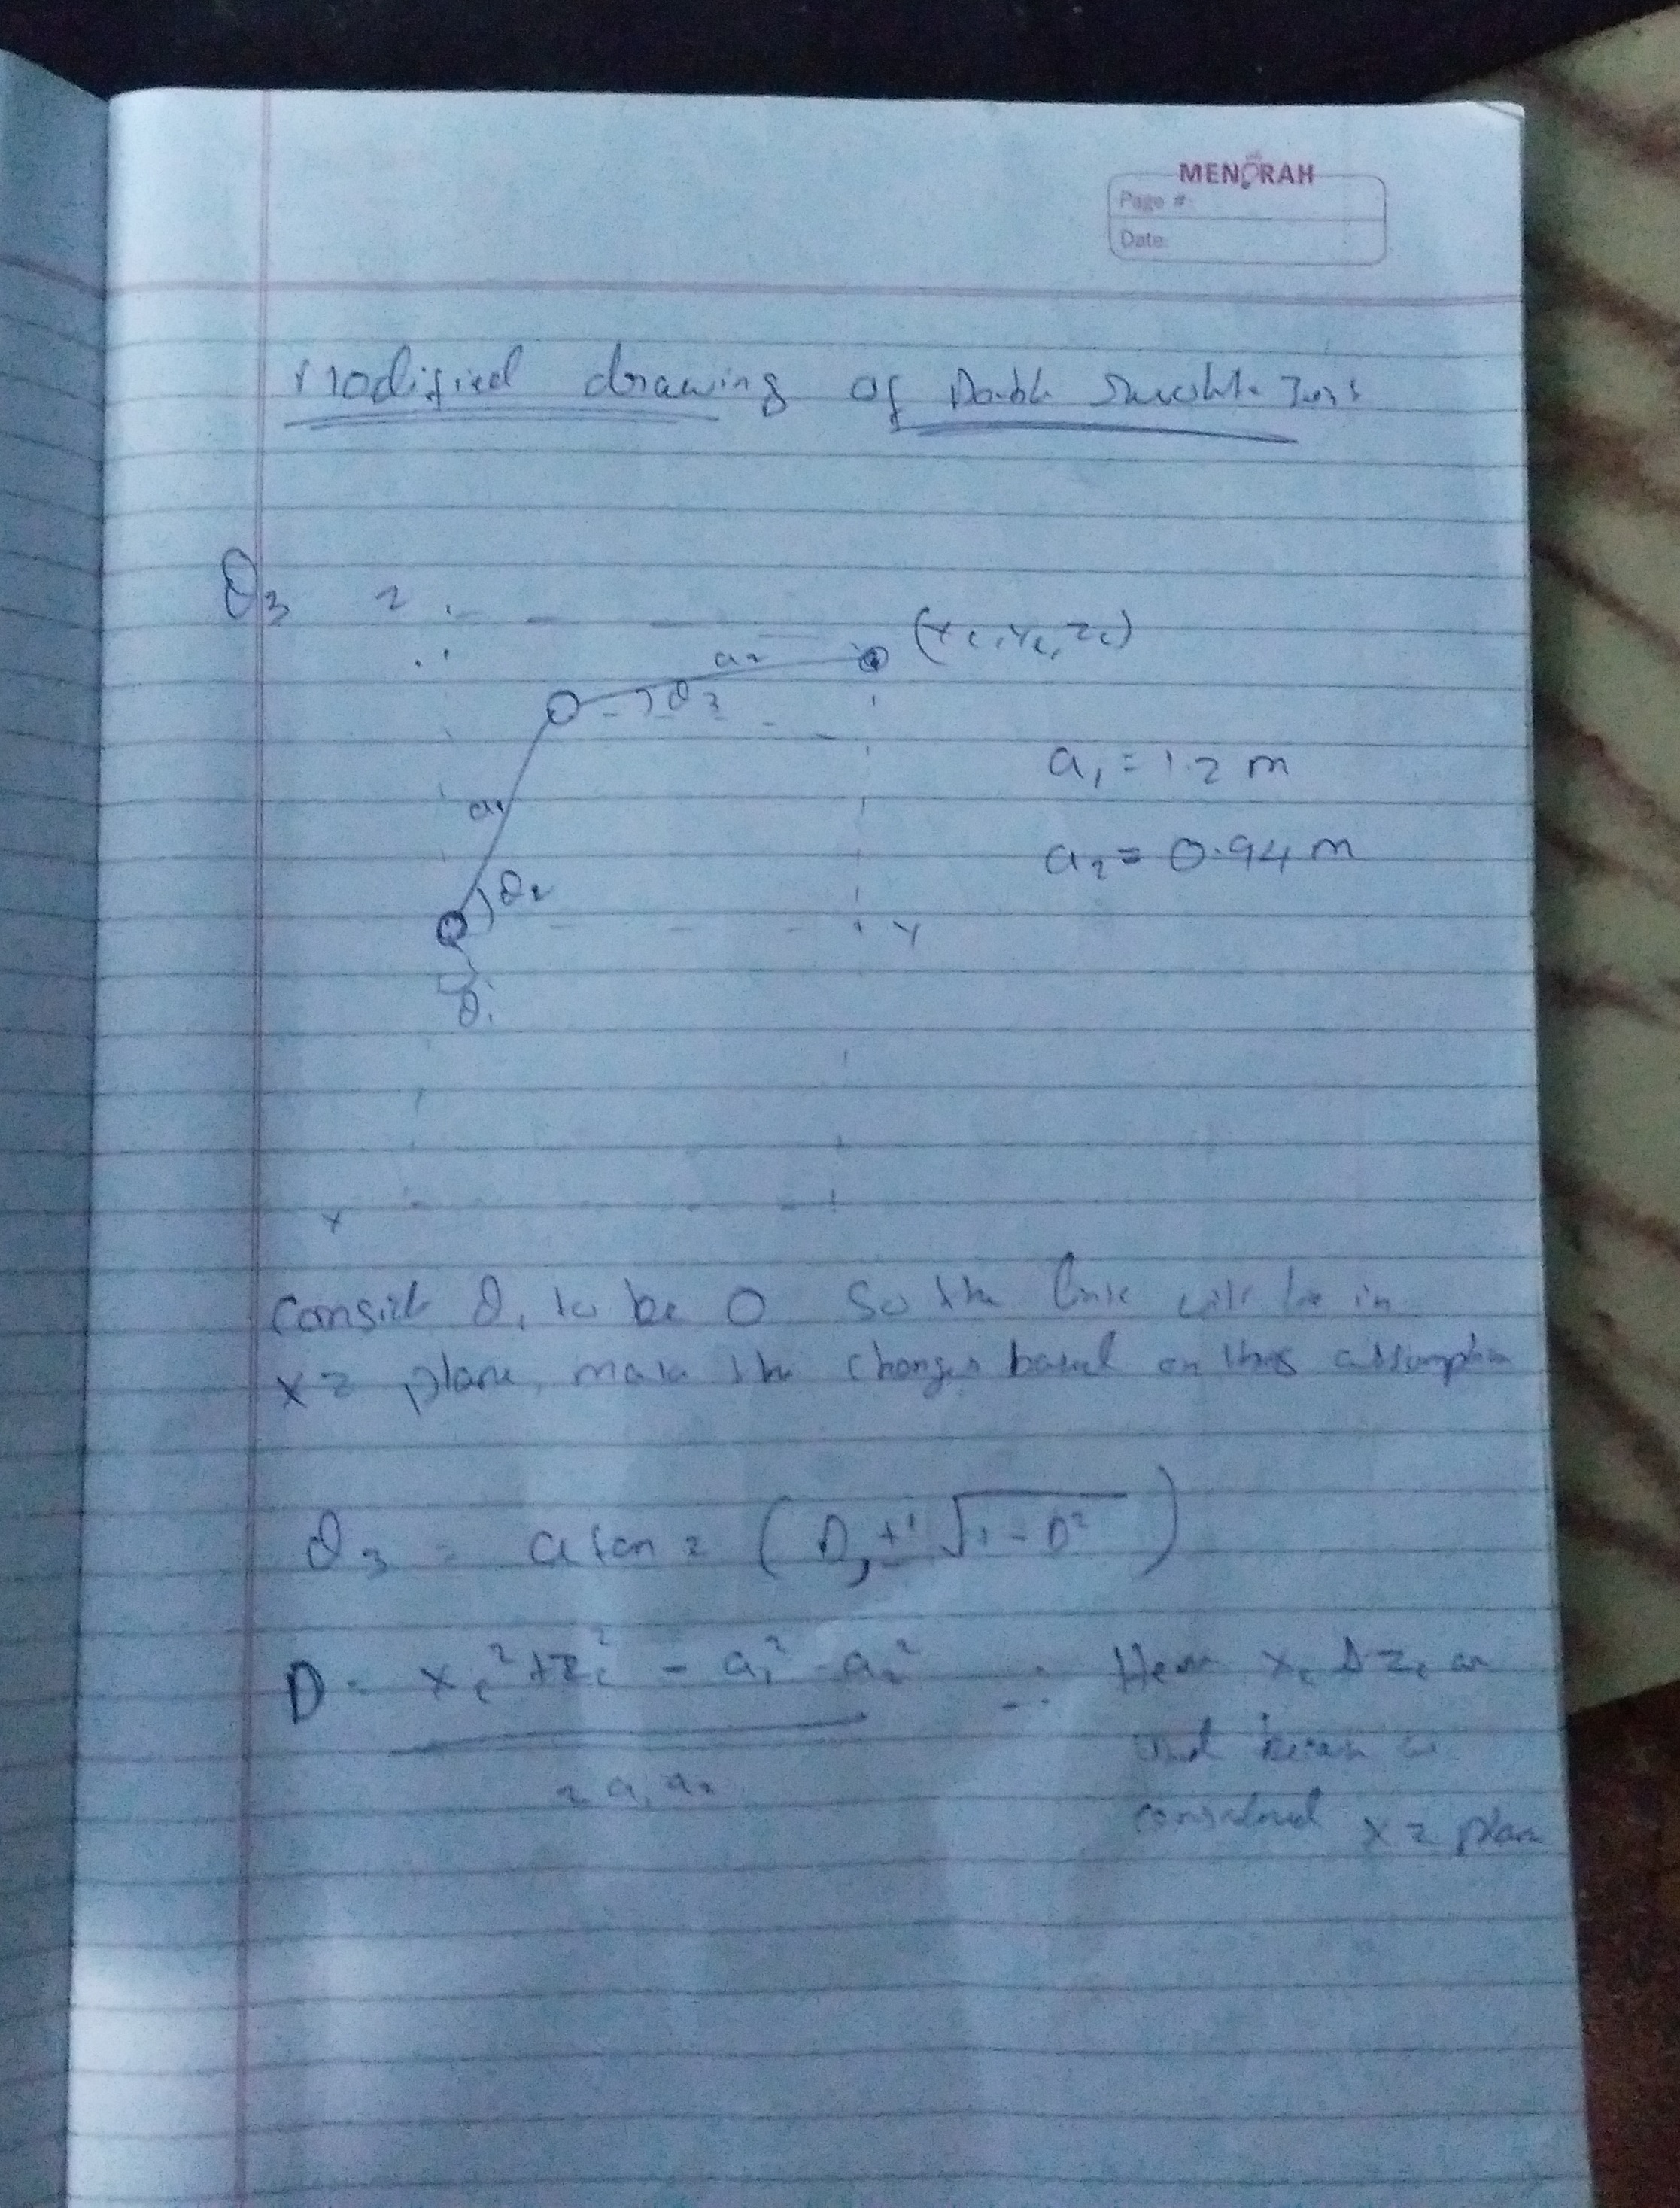 MENORAH
Page #:
Date:
Modified drawing of Double
θ3 z (xc, yc, zc)
a2
θ3
a1 = 1.2 m
a1
a2 = 0.94 m
θ2
Y
θ1
x
θ1 to be 0 so the link will be in
xz plane, make the changes based on this assumption
θ3 = atan2 (D, ± √1 - D²)
D = xc² + zc² - a1² - a2²
2 a1 a2
Here xc & zc are
used
considered xz plane